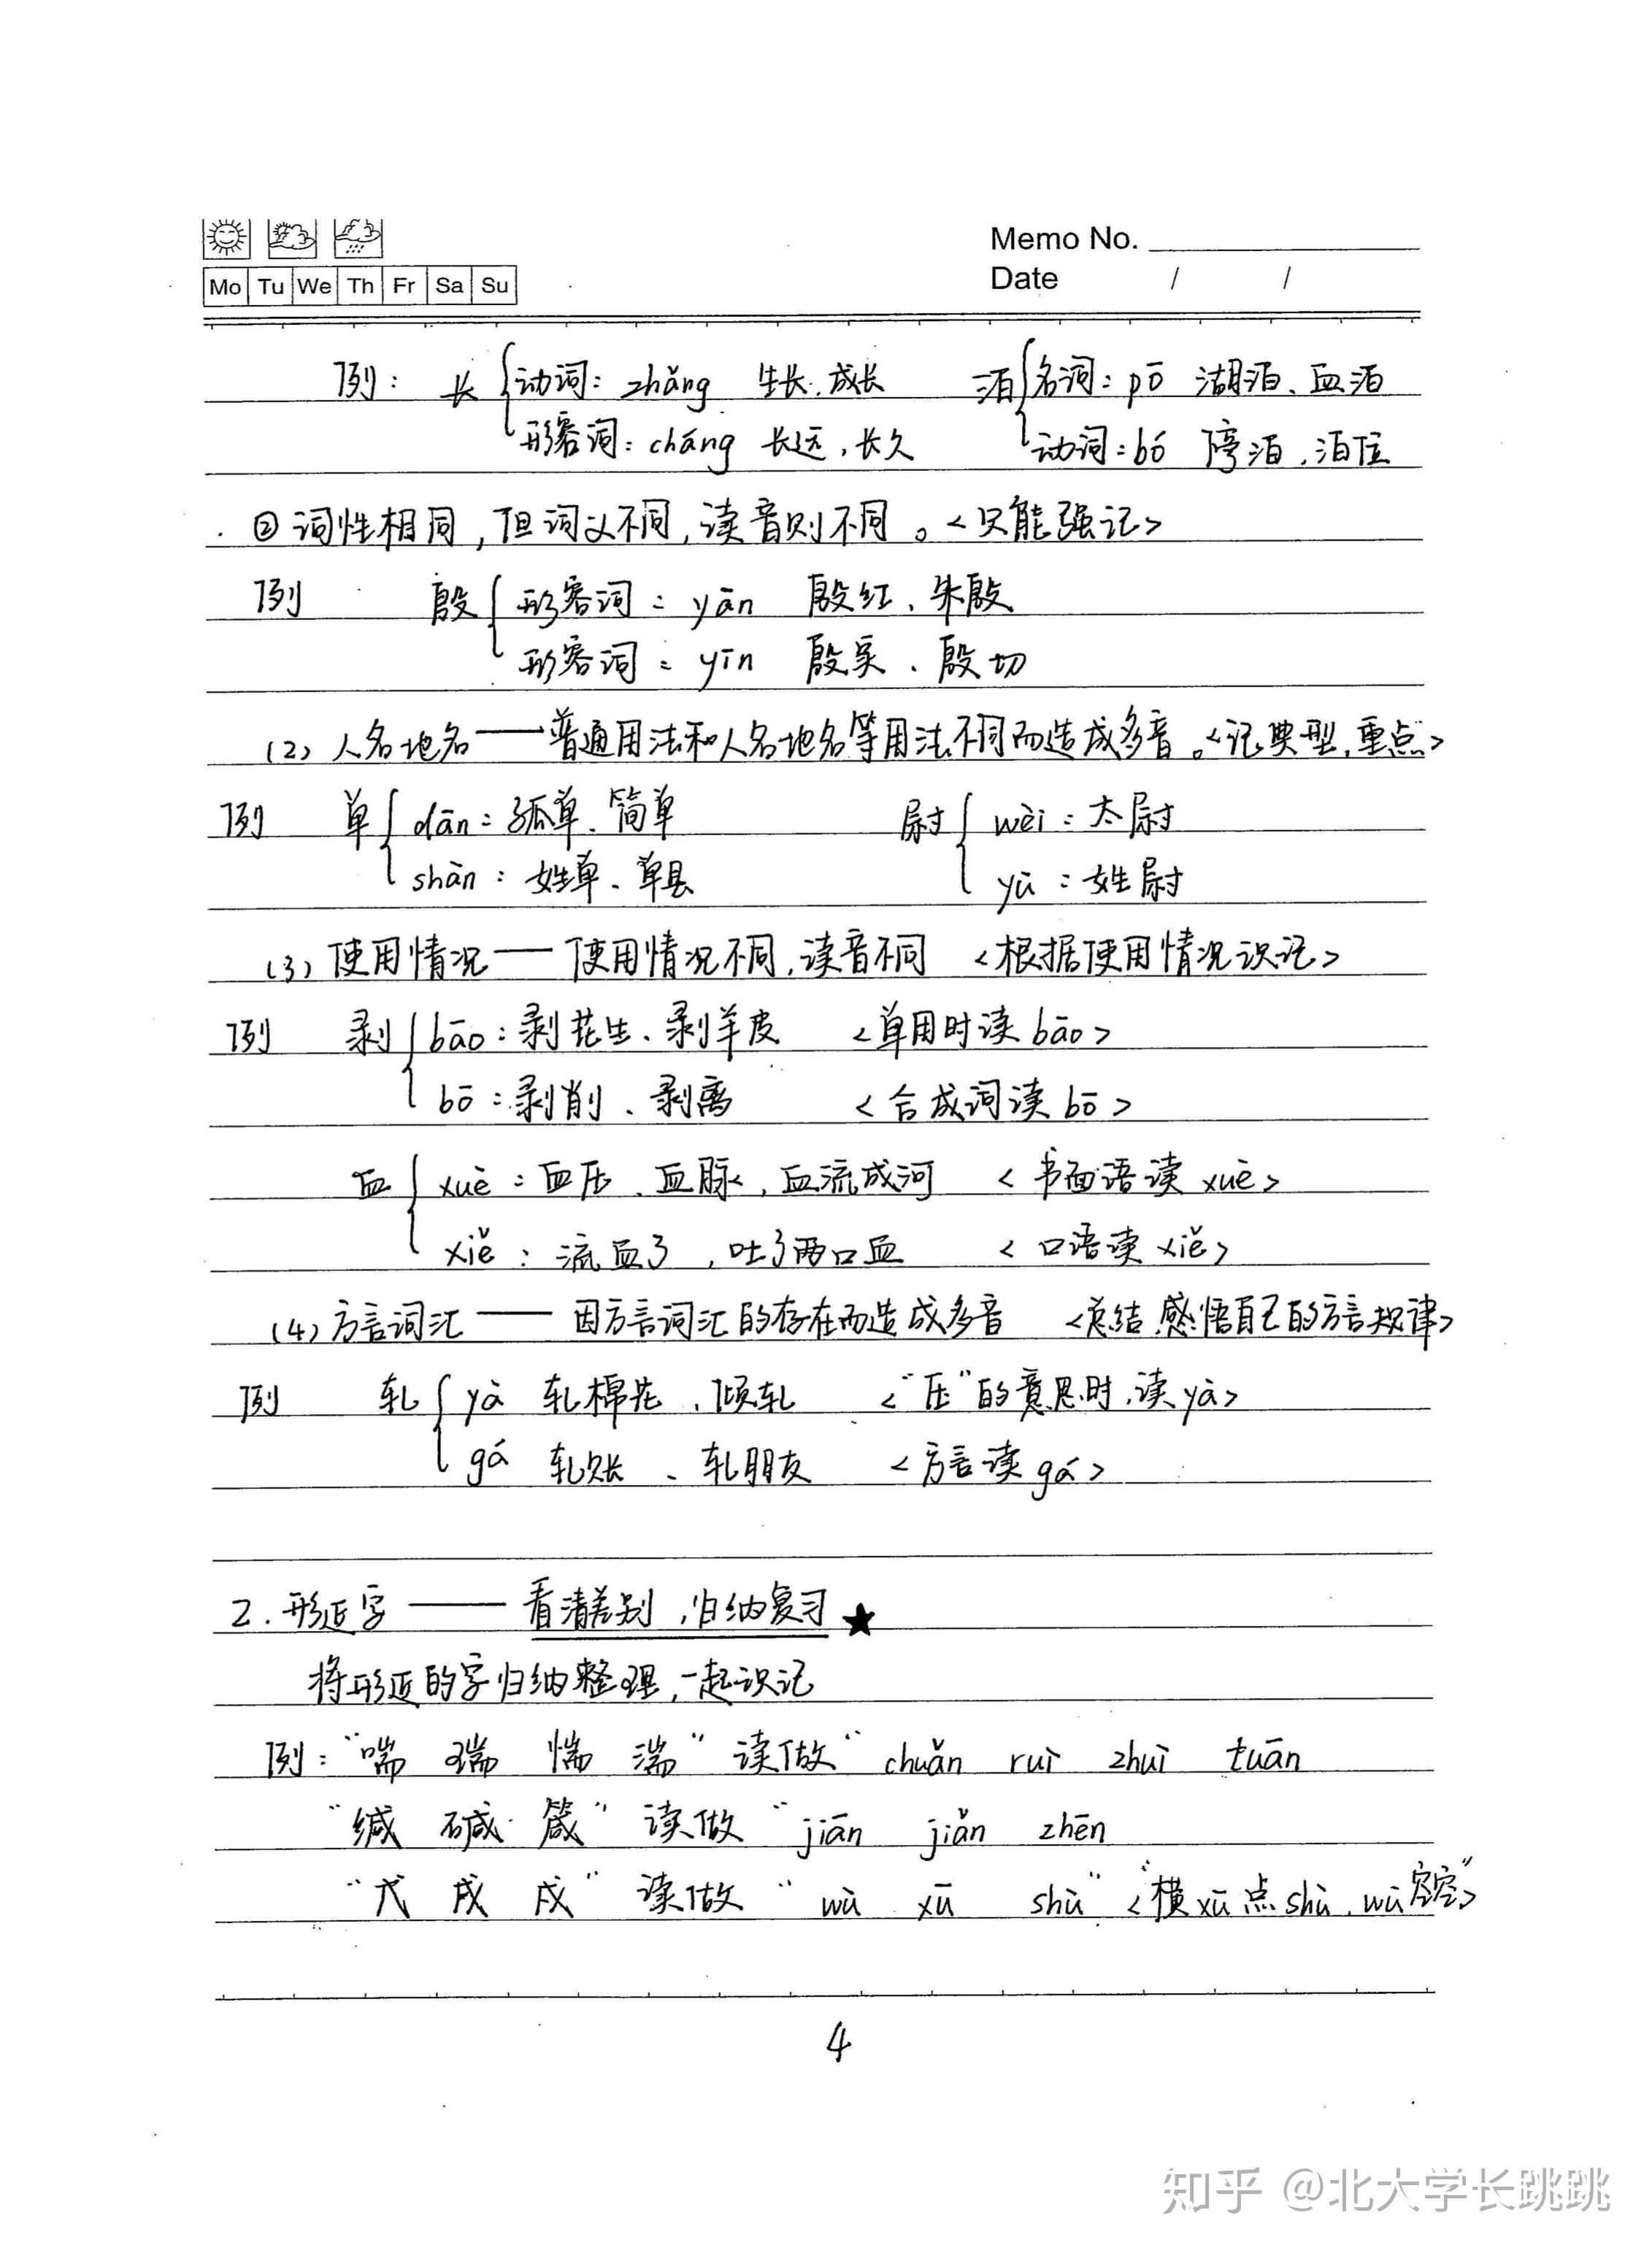 Memo No.
Mo Tu We Th Fr Sa Su
Date / /
例： 长 动词：zhǎng 生长、成长 泊 名词：pō 湖泊、血泊
形容词：cháng 长远、长久 动词：bó 停泊、泊位
② 词性相同，但词义不同，读音则不同。<只能强记>
例 殷 形容词：yān 殷红、朱殷
形容词：yīn 殷实、殷切
(2) 人名地名——普通用法和人名地名等用法不同而造成多音。<记典型，重点>
例 单 dān：孤单、简单 尉 wèi：太尉
shàn：姓单、单县 yù：姓尉
(3) 使用情况——使用情况不同，读音不同 <根据使用情况识记>
例 剥 bāo：剥花生、剥羊皮 <单用时读bāo>
bō：剥削、剥离 <合成词读bō>
血 xuè：血压、血脉、血流成河 <书面语读xuè>
xiě：流血了，吐了两口血 <口语读xiě>
(4) 方言词汇——因方言词汇的存在而造成多音 <总结、感悟自己的方言规律>
例 轧 yà 轧棉花、倾轧 <“压”的意思时，读yà>
gá 轧账、轧朋友 <方言读gá>
2. 形近字——看清差别，归纳复习★
将形近的字归纳整理，一起识记
例：“喘 瑞 惴 湍”读做“chuǎn ruì zhuì tuān
“缄 碱 箴”读做“jiān jiǎn zhēn
“戊 戌 戍”读做“wù xū shù”<“横xū点shù，wù空空”>
4
知乎 @北大学长跳跳